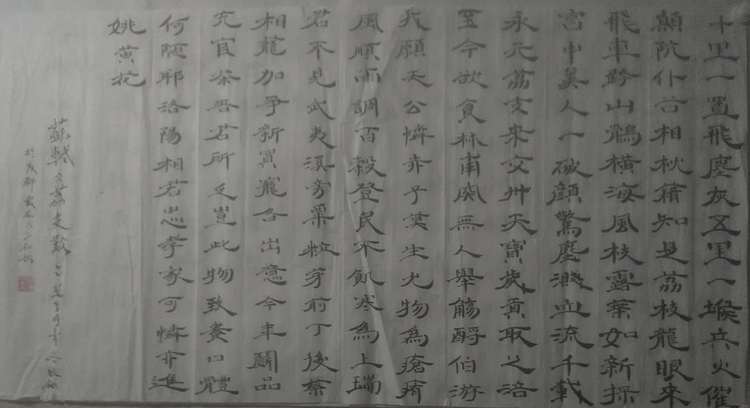 十里一置飛塵灰五里一堠兵火催
顛阬仆谷相枕藉知是荔枝龍眼來
飛車跨山鶻橫海風枝露葉如新採
宮中美人一破顏驚塵濺血流千載
永元荔支來交州天寶歲貢取之涪
至今欲食林甫肉無人舉觴酹伯游
我願天公憐赤子莫生尤物為瘡痏
風順雨調百穀登民不飢寒為上瑞
君不見武夷溪邊粟粒芽前丁後蔡
相籠加爭新買寵各出意今年鬭品
充官茶吾君所乏豈此物致養口體
何陋耶洛陽相君忠孝家可憐亦進
姚黃花
蘇軾荔支歎